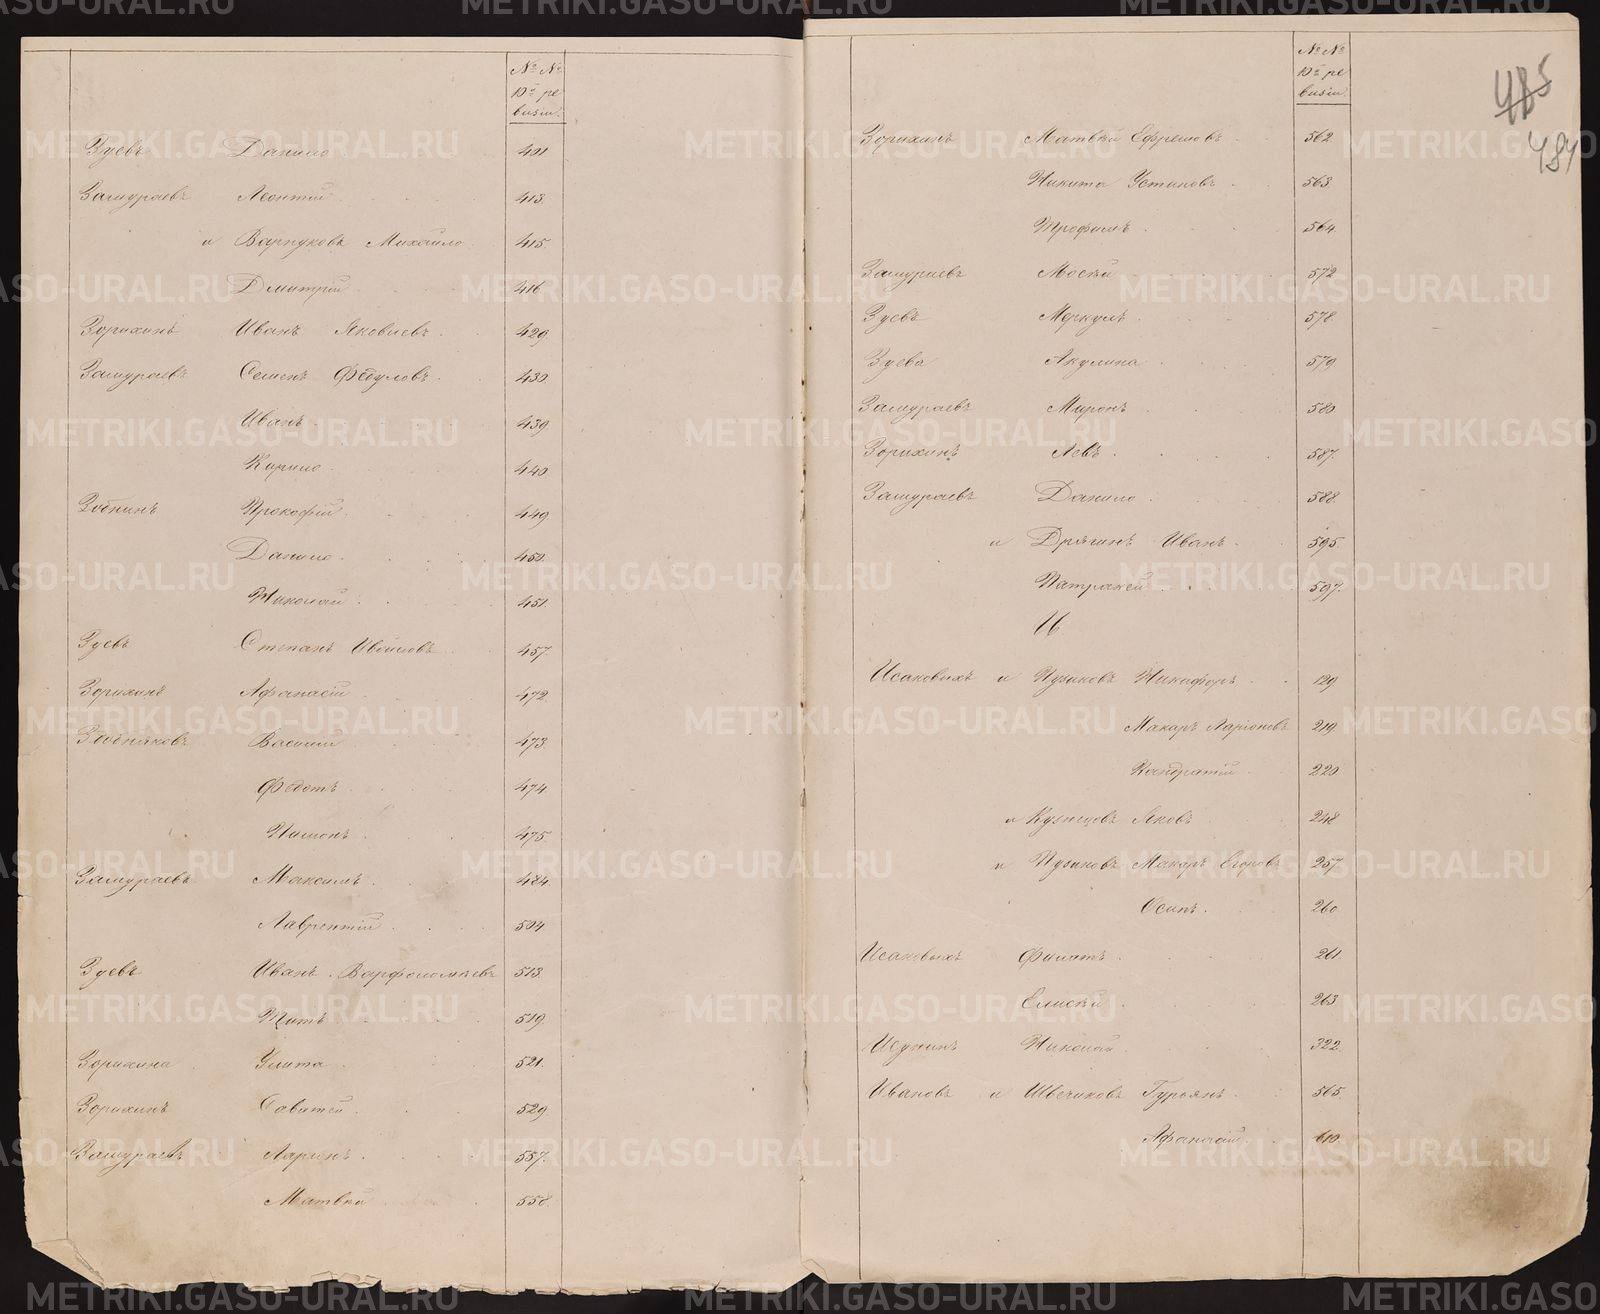 № №
10й ре
визiи.
Зуевъ Данило 401
Замураевъ Леонтiй 413.
и Варнуковъ Михайло 415
Дмитрiй 416
Зорихинъ Иванъ Яковлевъ 429.
Замураевъ Семенъ Федуловъ 430
Иванъ 439
Кирило 440
Зобнинъ Прокофiй 449
Данило 450.
Николай 451.
Зуевъ Степанъ 457.
Зорихинъ Афанасiй 472.
Василiй 473.
Федотъ 474
Пимонъ 475.
Замураевъ Максимъ 484.
Лаврентiй 504
Зуевъ Иванъ Варфоломѣевъ 513.
Титъ 519
Зорихина Улита 521.
Зорихинъ Савватей 529.
Замураевъ Ларiонъ 557.
Матвѣй 558.
№ №
10й ре
визiи.
485
484
Зорихинъ Матвѣй Ефремовъ 562
Никита Устиновъ 563
Трофимъ 564
Замураевъ Мосѣй 572
Зуевъ Меркулъ 578.
Зуева Акулина 579
Замураевъ Миронъ 580
Зорихинъ Левъ 587.
Замураевъ Данило 588.
и Дрягинъ Иванъ 595.
Патракей 597.
И
Исаковыхъ и Пузиковъ Никифоръ 129
Макаръ Ларiоновъ 219
Кандратiй 220
и Кузнецовъ Яковъ 248
и Пузиковъ Макаръ Егоровъ 257
Осипъ 260
Исаковыхъ Филатъ 261.
Елисѣй 263
Николай 322.
Ивановъ и Швечиковъ Гурьянъ 565.
Афанасiй 610